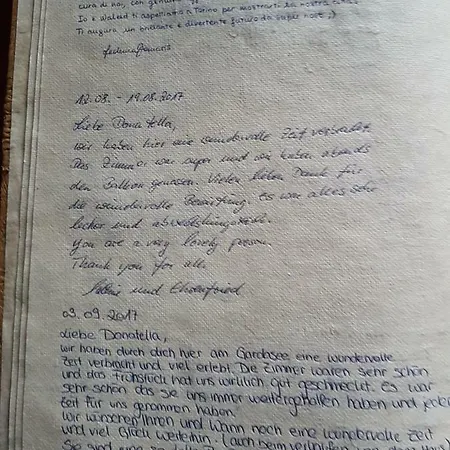 cura di noi, con
Io e Waleed ti aspettiamo a Torino per mostrarti la nostra
Ti auguro un brillante e divertente futuro da super host ;)
12.08. - 19.08.2017
Liebe Donatella,
wir haben hier eine wundervolle Zeit verbracht.
Das Zimmer war super und wir haben abends
den Balkon genossen. Vielen lieben Dank für
die wundervolle Bewirtung. Es war alles sehr
lecker und abwechslungsreich.
You are a very lovely person.
Thank you for all.
und Ehrenfried
03.09.2017
Liebe Donatella,
wir haben durch dich hier am Gardasee eine wundervolle
Zeit verbracht und viel erlebt. Die Zimmer waren sehr schön
und das Frühstück hat uns wirklich gut geschmeckt. Es war
sehr schön das sie uns immer weitergeholfen haben und jeder
Zeit für uns genommen haben.
Wir wünschen Ihnen und Wann noch eine wundervolle Zeit
und viel Glück weiterhin. (auch beim
Sie sind eine